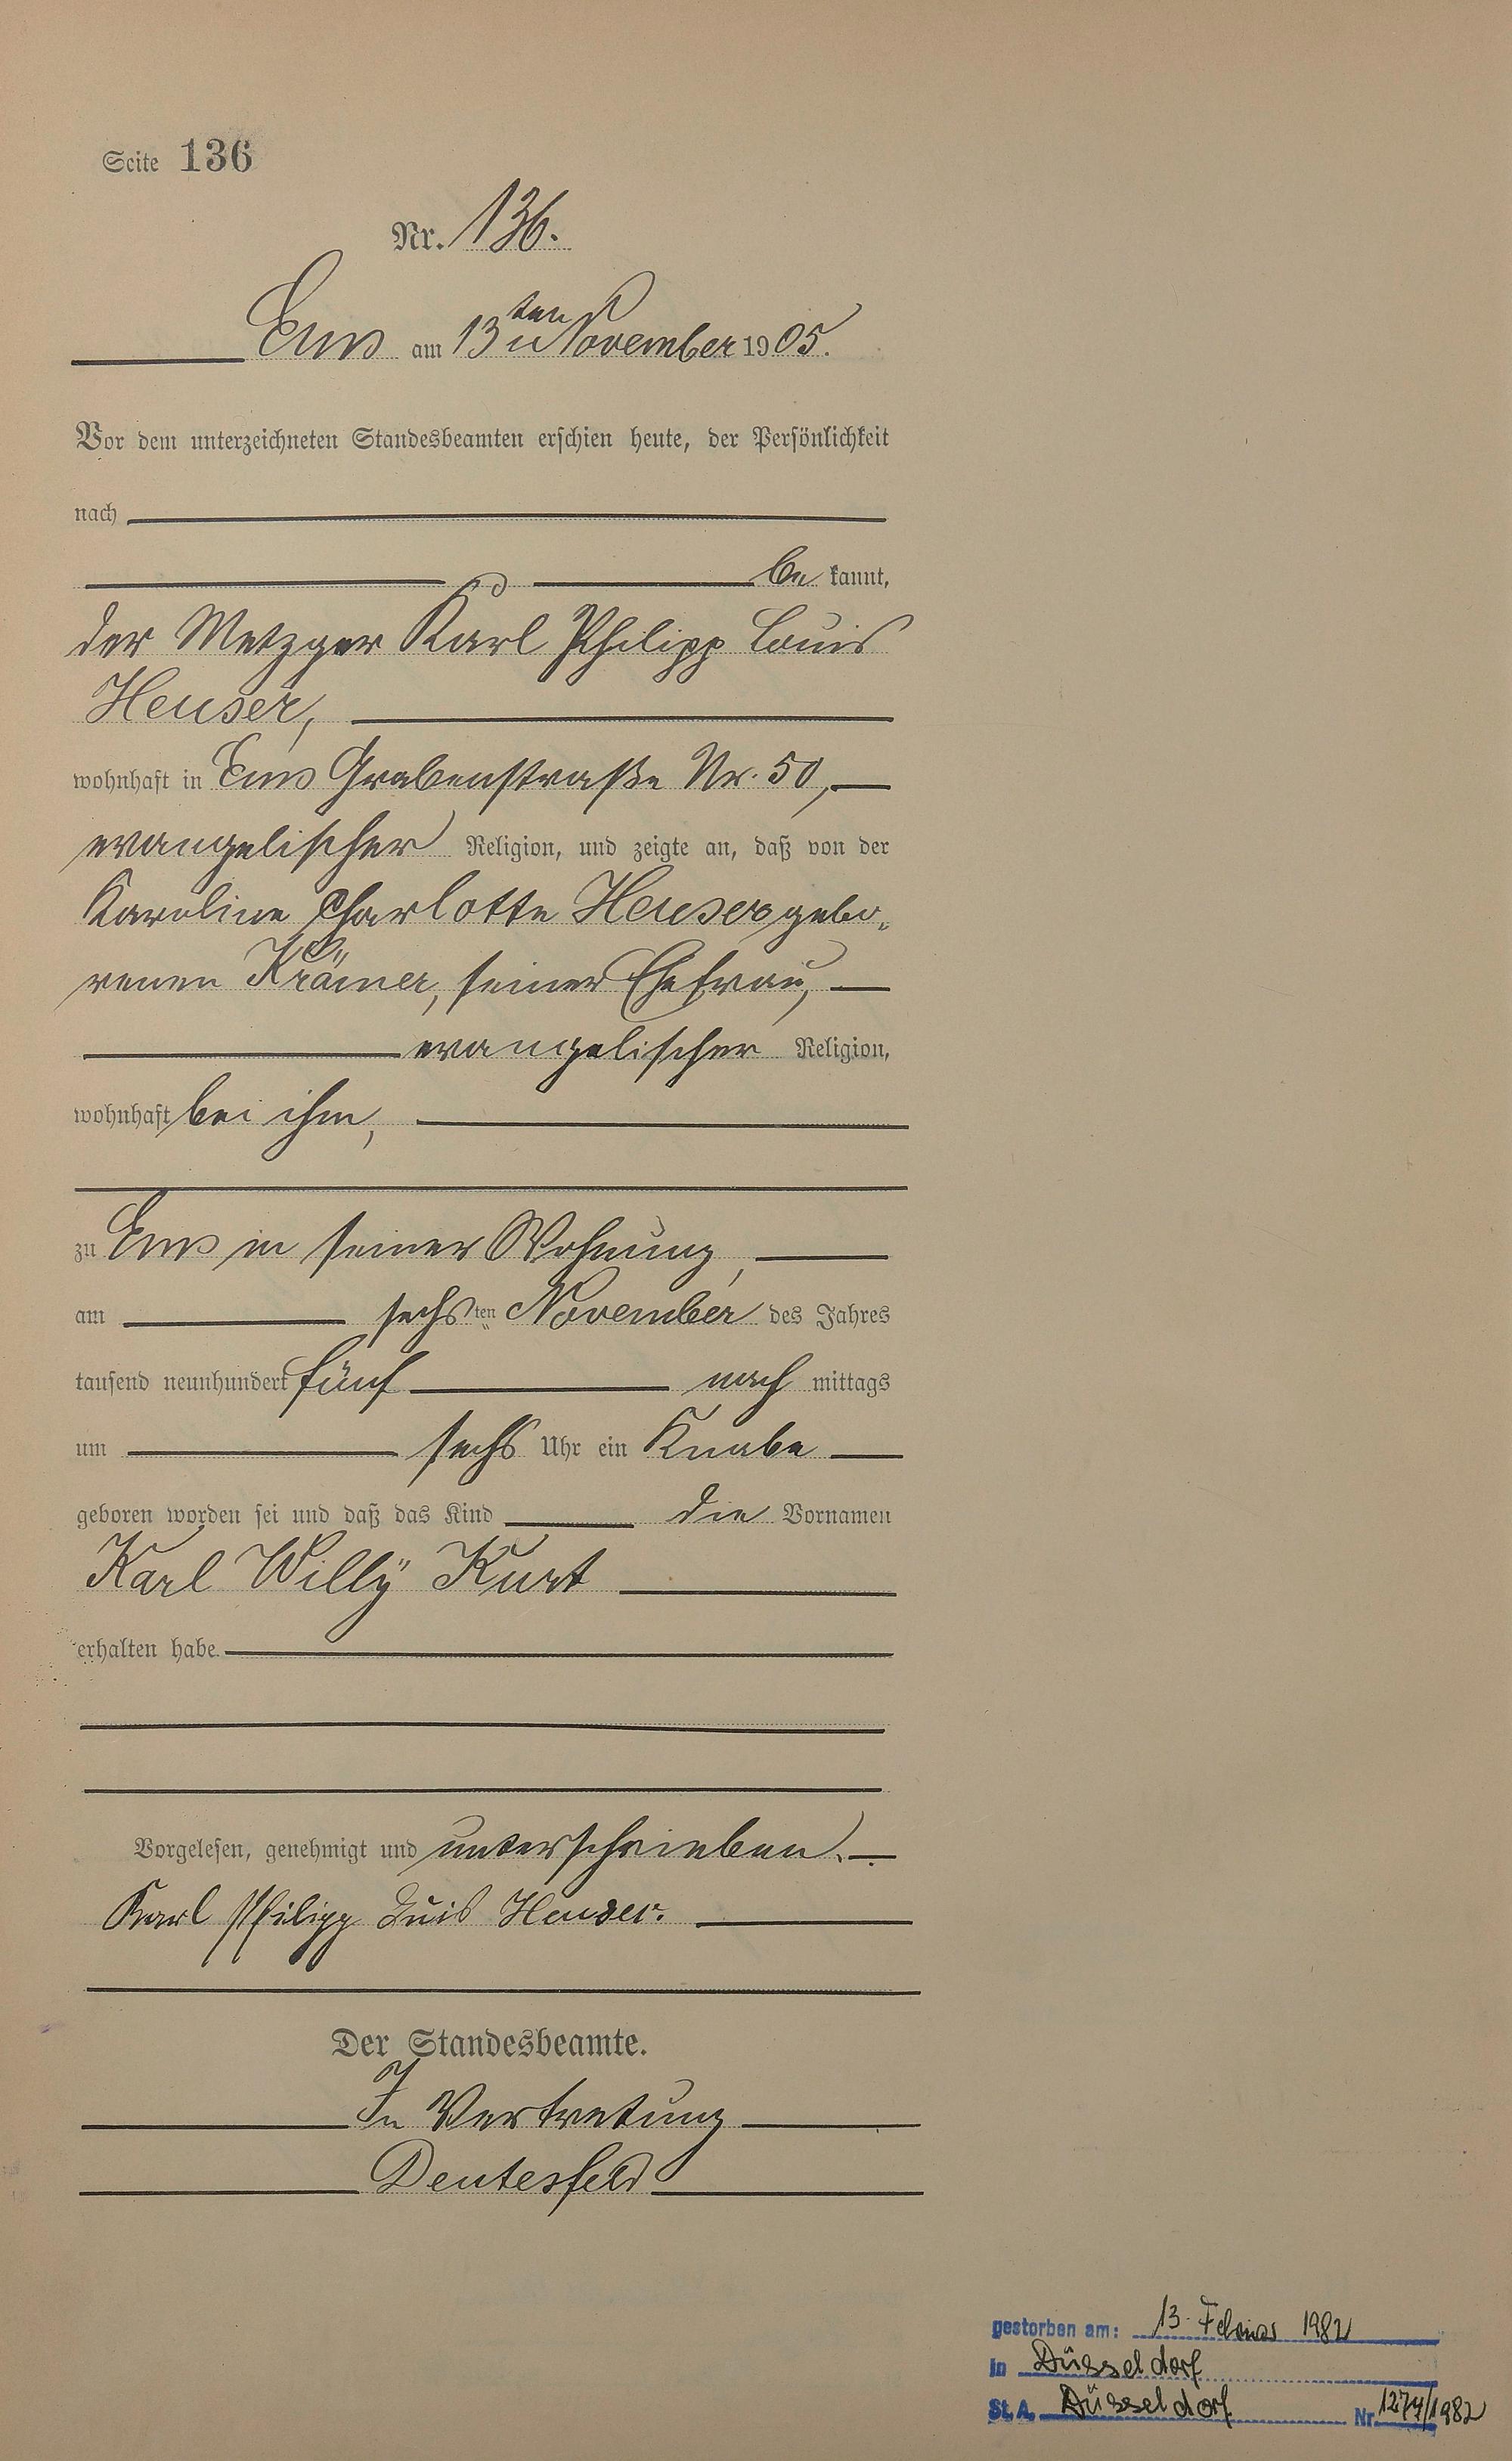 Seite 136
Nr. 136.
Ems am 13ten November 1905.
Vor dem unterzeichneten Standesbeamten erschien heute, der Persönlichkeit
nach
be kannt,
der Metzger Karl Philipp Louis
Heuser,
wohnhaft in Ems Grabenstraße Nr. 50,
evangelischer Religion, und zeigte an, daß von der
Karoline Charlotte Heuser gebo-
renen Krämer, seiner Ehefrau,
evangelischer Religion,
wohnhaft bei ihm,
zu Ems in seiner Wohnung,
am sechsten November des Jahres
tausend neunhundert fünf nach mittags
um sechs Uhr ein Knabe
geboren worden sei und daß das Kind die Vornamen
Karl Willÿ Kurt
erhalten habe.
Vorgelesen, genehmigt und unterschrieben.
Karl Philipp Luis Heuser.
Der Standesbeamte.
In Vertretung
Deutesfeld
gestorben am: 13. Februar 1982
in Düsseldorf
St. A. Düsseldorf Nr. 1274/1982